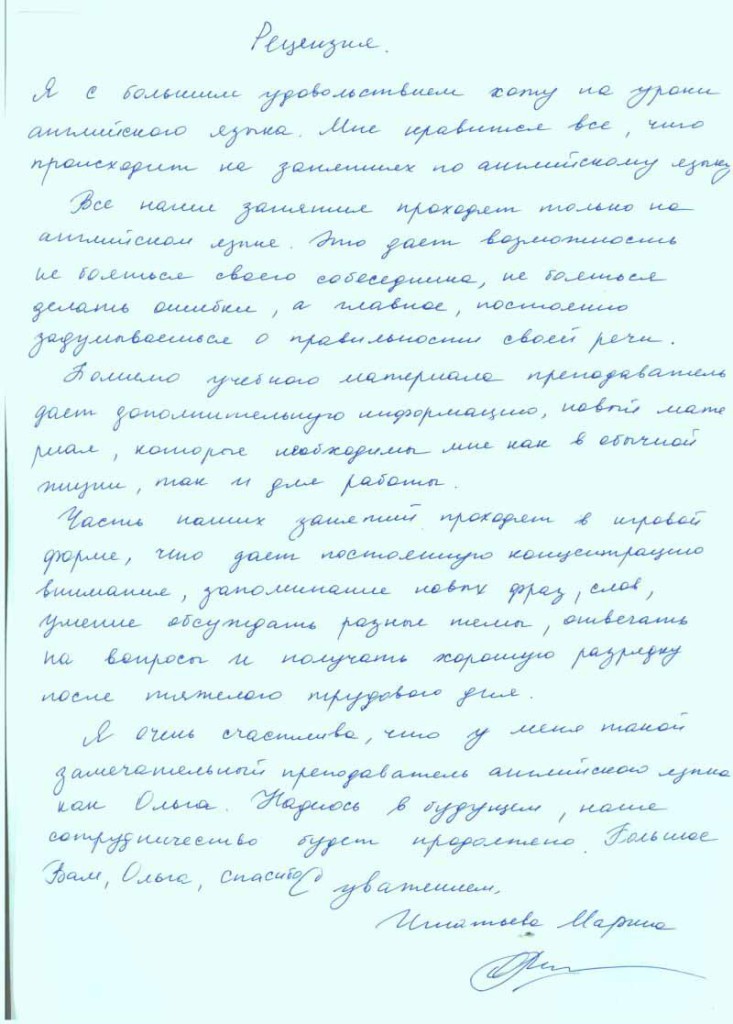 Рецензия.
Я с большим удовольствием хожу на уроки
английского языка. Мне нравится все, что
происходит на занятиях по английскому языку
Все наши занятия проходят только на
английском языке. Это дает возможность
не бояться своего собеседника, не бояться
делать ошибки, а главное, постоянно
задумываешься о правильности своей речи.
Помимо учебного материала преподаватель
дает дополнительную информацию, новый мате
риал, которые необходимы мне как в обычной
жизни, так и для работы.
Часть наших занятий проходят в игровой
форме, что дает постоянную концентрацию
внимания, запоминание новых фраз, слов,
умение обсуждать разные темы, отвечать
на вопросы и получать хорошую разрядку
после тяжелого трудового дня.
Я очень счастлива, что у меня такой
замечательный преподаватель английского языка
как Ольга. Надеюсь в будущем, наше
сотрудничество будет продолжено. Большое
Вам, Ольга, спасибо
С уважением,
Игнатьева Марина